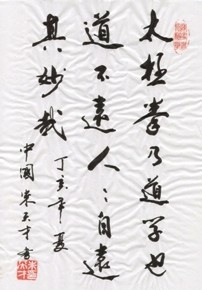 太極拳乃道学也
道不遠人人自遠
真妙哉
丁亥年夏
中國朱天才書